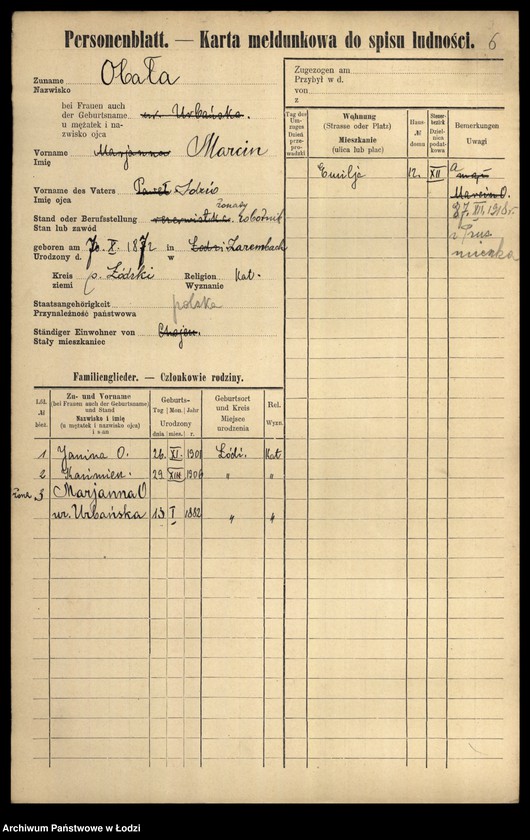 Personenblatt. — Karta meldunkowa do spisu ludności. 6
Zuname Obała
Nazwisko
bei Frauen auch
der Geburtsname ur. Urbańska.
u mężatek i na-
zwisko ojca
Vorname Marjanna Marcin
Imię
Vorname des Vaters Paweł
Imię ojca
żonaty
Stand oder Berufsstellung robotnik
Stan lub zawód
geboren am X. 1872 in Łodzi Zarembach
Urodzony d. w
Kreis p. Łódzki Religion Kat.
ziemi Wyznanie
Staatsangehörigkeit polska
Przynależność państwowa
Ständiger Einwohner von Chojen.
Stały mieszkaniec
Familienglieder. — Członkowie rodziny.
Lfd. № bież.
Zu- und Vorname
(bei Frauen auch der Geburtsname)
und Stand
Nazwisko i imię
(u mężatek i nazwisko ojca)
i stan
Geburts-
Tag Mon. Jahr
Urodzony
dnia mies. r.
Geburtsort
und Kreis
Miejsce
urodzenia
Rel.
Wyzn.
1 Janina O. 26. XI. 1901 Łódź. Kat.
2 Kazimierz. 29 XII 1906 " "
żona 3 Marjanna O
ur. Urbańska 13 I 1882 " "
Zugezogen am
Przybył w d.
von
z
Tag des
Um-
zuges
Dzień
prze-
pro-
wadzki
Wohnung
(Strasse oder Platz)
Mieszkanie
(ulica lub plac)
Haus-
№
domu
Steuer-
bezirk
Dziel-
nica
podat-
kowa
Bemerkungen
Uwagi
Emilja 12. XII a
mąż
Marcin O.
27. III. 1918 r.
z Prus
Archiwum Państwowe w Łodzi